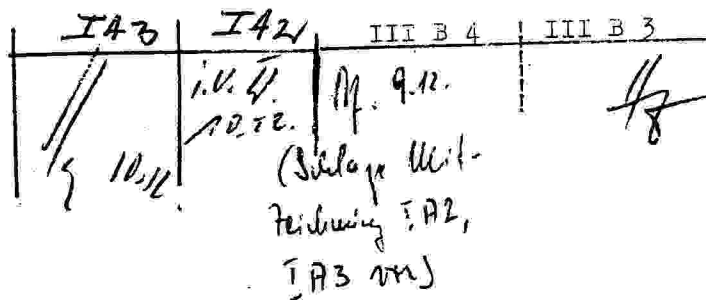 I A 3 I A 2 III B 4 III B 3
i.V.
10.12. 9.12.
10.12
(Schlage Mit-
zeichnung I A 2,
I A 3 vor)